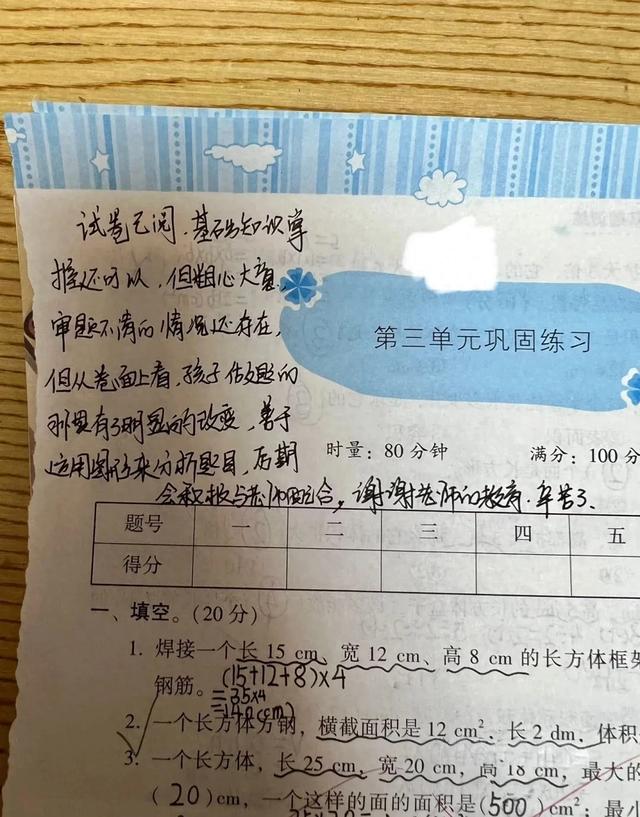 试卷已阅,基础知识掌
握还可以,但粗心大意,
审题不清的情况还存在,
但从卷面上看,孩子做题的
习惯有了明显的改变,善于
运用图形来分析题目,后期
会积极与老师配合,谢谢老师的教育.辛苦了.
第三单元巩固练习
时量:80分钟 满分:100分
题号 一 二 三 四 五
得分
一、填空。(20分)
1. 焊接一个长 15 cm、宽 12 cm、高 8 cm 的长方体框架
(15+12+8)×4
钢筋。
=35×4
=140(cm)
2. 一个长方体方钢,横截面积是 12 cm²,长 2 dm,体积
3. 一个长方体,长 25 cm,宽 20 cm,高 18 cm,最大的
(20)cm,一个这样的面的面积是(500)cm²;最小